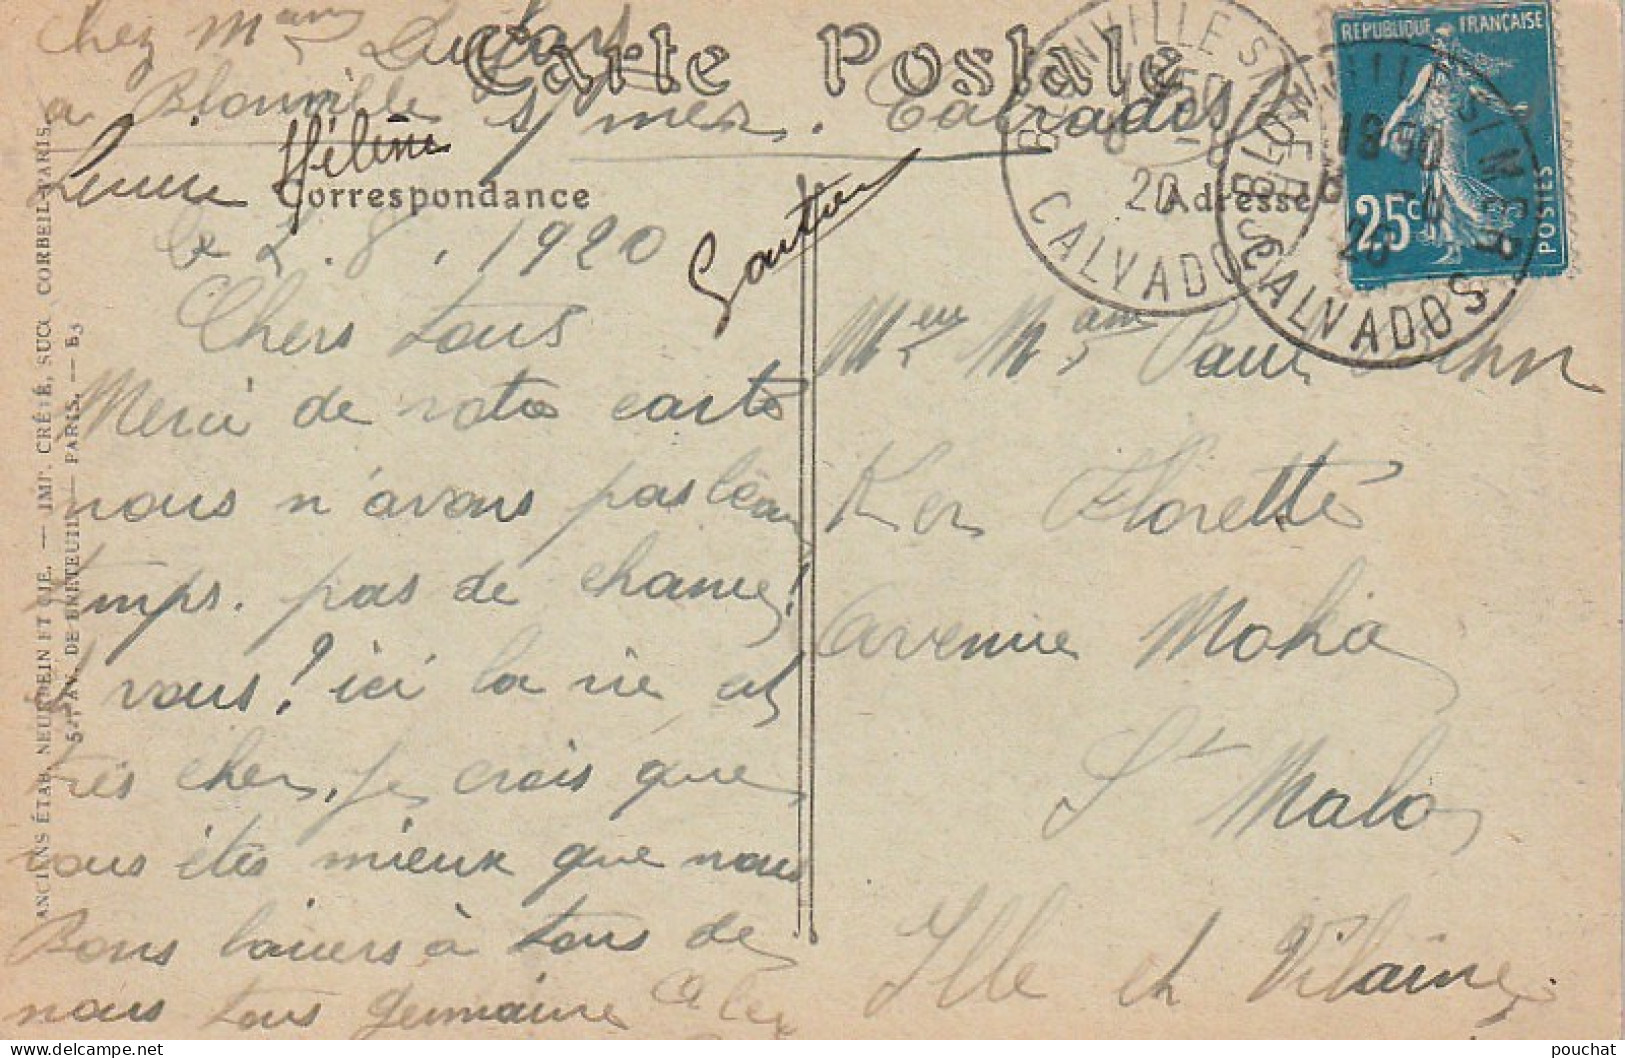 Chez Mam
Carte Postale
a Blonville s/mer. Calvados
Lucie Hélène Gautier
Correspondance
Adresse
le 2.8.1920
Chers tous
Merci de votre carte
nous n'avons pas beau
temps. pas de chance!
et vous! ici la vie est
très cher, je crois que
vous êtes mieux que nous
Bons baisers à tous de
nous tous Germaine Alex
Mr et Mam Paul
Ker Florette
avenue Moka
St Malo
Ille et Vilaine.
REPUBLIQUE FRANÇAISE
25c
POSTES
BLONVILLE S MER
20
CALVADOS
BLONVILLE S MER
18 30
20
CALVADOS
ANCIENS ÉTAB. NEURDEIN ET CIE. — IMP. CRÉTÉ, SUCC CORBEIL-PARIS.
52, AV. DE BRETEUIL — PARIS. — B3
pouchat